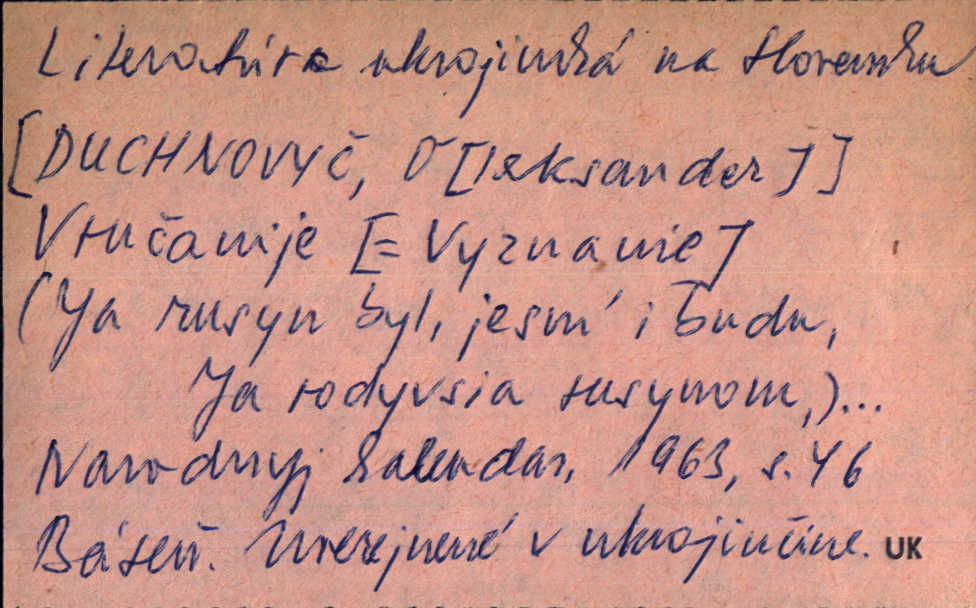 Literatúra ukrajinská na Slovensku
[DUCHNOVYČ, O[leksander]]
Vručanije [= Vyznanie]
(Ja rusyn byl, jesm' i budu,
Ja rodyvsia rusynom,)...
Narodnyj kalendar, 1963, s. 46
Báseň. Uverejnené v ukrajinčine. UK